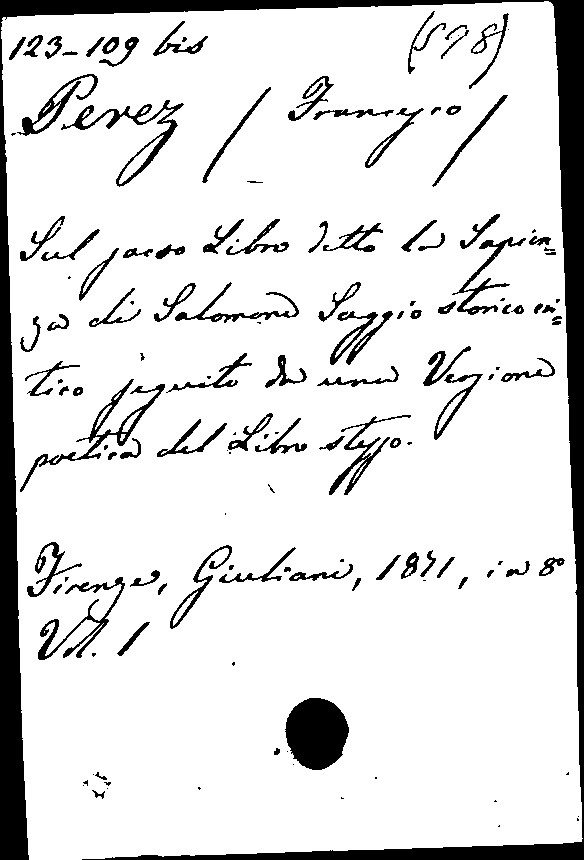 123-109 bis (598)
Perez / Francesco /
Sul sacro Libro detto la Sapien=
za di Salomone Saggio storico cri=
tico seguito da una Versione
poetica del Libro stesso.
Firenze, Giuliani, 1871, in 8°
Vol. 1